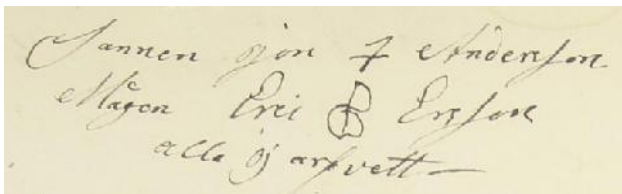 Sonnen Jon Anderson
Mågen Eric Erson
alla j arfvett